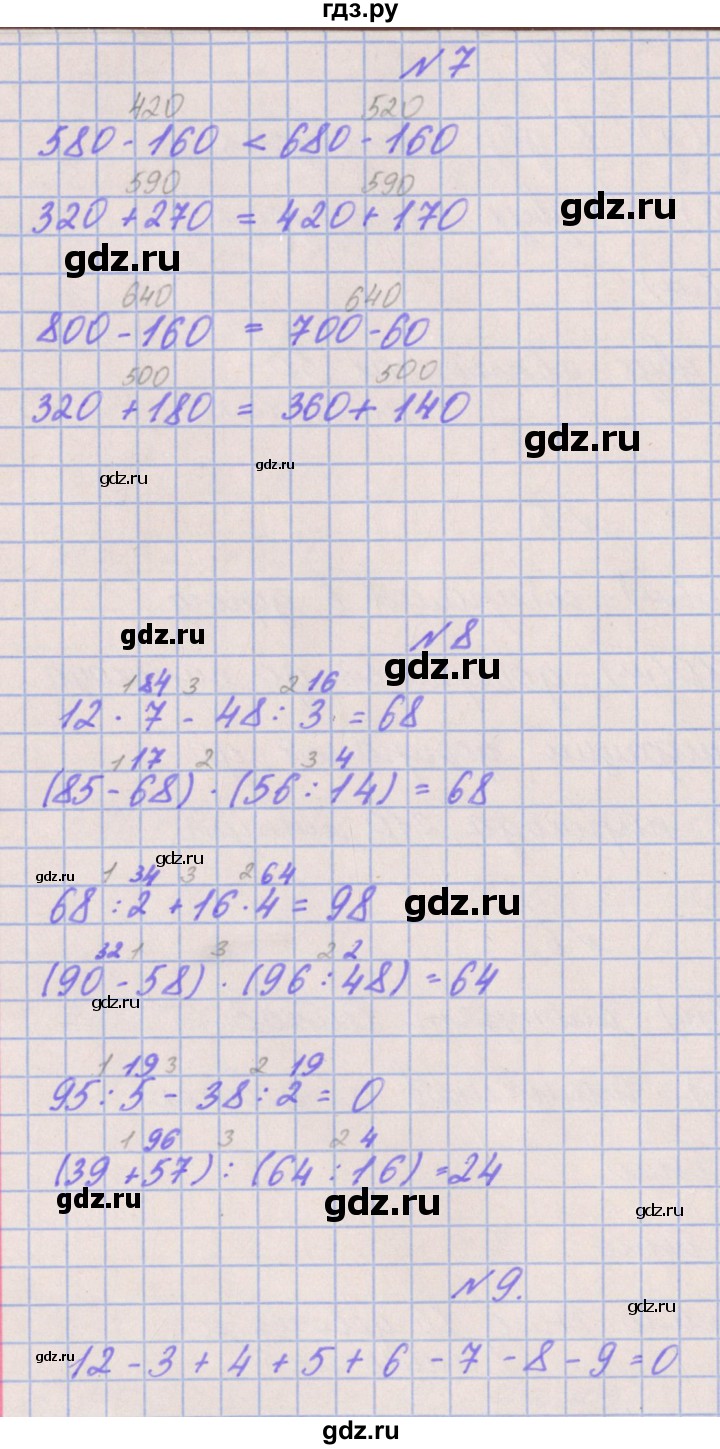 гдз.ру
№ 7
420 520
580 - 160 < 680 - 160
590 590
320 + 270 = 420 + 170
gdz.ru
gdz.ru
640 640
800 - 160 = 700 - 60
500 500
320 + 180 = 360 + 140
gdz.ru
gdz.ru
gdz.ru
gdz.ru
№ 8
gdz.ru
1 84 3 2 16
12 · 7 - 48 : 3 = 68
1 17 2 3 4
(85 - 68) · (56 : 14) = 68
gdz.ru
gdz.ru
1 34 3 2 64
68 : 2 + 16 · 4 = 98
gdz.ru
32 1 3 2 2
(90 - 58) · (96 : 48) = 64
gdz.ru
1 19 3 2 19
95 : 5 - 38 : 2 = 0
1 96 3 2 4
(39 + 57) : (64 : 16) = 24
gdz.ru
gdz.ru
gdz.ru
№ 9.
gdz.ru
gdz.ru
12 - 3 + 4 + 5 + 6 - 7 - 8 - 9 = 0
gdz.ru